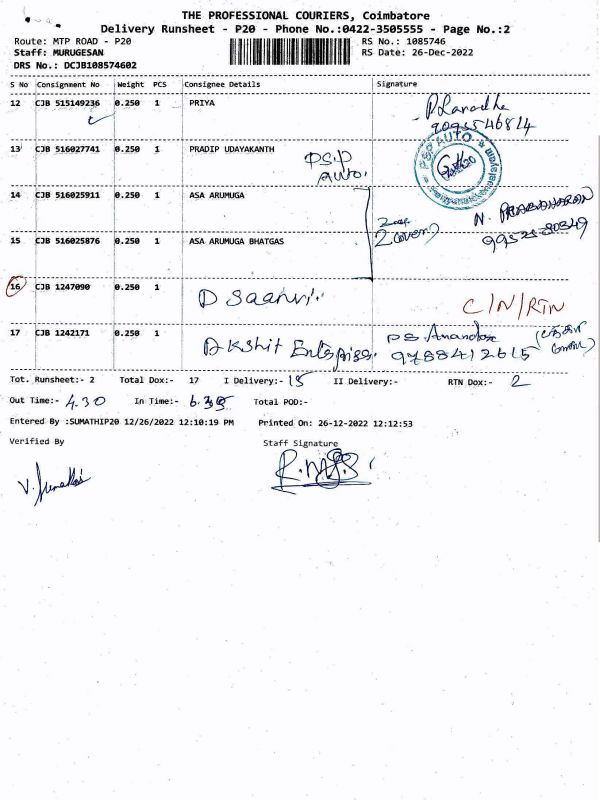 THE PROFESSIONAL COURIERS, Coimbatore
Delivery Runsheet - P20 - Phone No.:0422-3505555 - Page No.:2
Route: MTP ROAD - P20
RS No.: 1085746
Staff: MURUGESAN
RS Date: 26-Dec-2022
DRS No.: DCJB108574602
S No Consignment No Weight PCS Consignee Details Signature
12 CJB 515149236 0.250 1 PRIYA
13 CJB 516027741 0.250 1 PRADIP UDAYAKANTH
PSP
Auto.
PSP AUTO
14 CJB 516025911 0.250 1 ASA ARUMUGA
N. PRABAHARAN
15 CJB 516025876 0.250 1 ASA ARUMUGA BHATGAS
2 cover
16 CJB 1247090 0.250 1 D Saanvi.
C/N/RTN
17 CJB 1242171 0.250 1 Akshit Enterprise.
P.S. Anandan
9788412615
Tot. Runsheet:- 2 Total Dox:- 17 I Delivery:- 15 II Delivery:- RTN Dox:- 2
Out Time:- 4.30 In Time:- 6.35 Total POD:-
Entered By :SUMATHIP20 12/26/2022 12:10:19 PM Printed On: 26-12-2022 12:12:53
Verified By Staff Signature